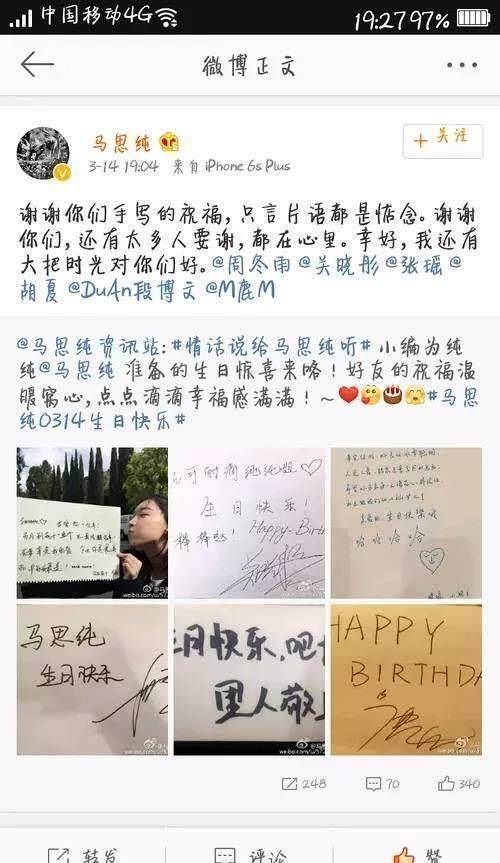 中国移动4G 19:27 97%
微博正文
马思纯
+关注
3-14 19:04 来自 iPhone 6s Plus
谢谢你们手写的祝福,只言片语都是惦念。谢谢
你们,还有太多人要谢,都在心里。幸好,我还有
大把时光对你们好。@周冬雨 @关晓彤 @张瑶 @
胡夏 @DuAn段博文 @M鹿M
@马思纯资讯站:#情话说给马思纯听# 小编为纯
纯@马思纯 准备的生日惊喜来咯!好友的祝福温
暖窝心,点点滴滴幸福感满满!~ #马思
纯0314生日快乐#
生日快乐!
Happy-Birth
生日快乐
哈哈哈哈
马思纯
生日快乐
生日快乐,吧
里人敬上
HAPPY
BIRTHDA
248 70 340
转发 评论 赞